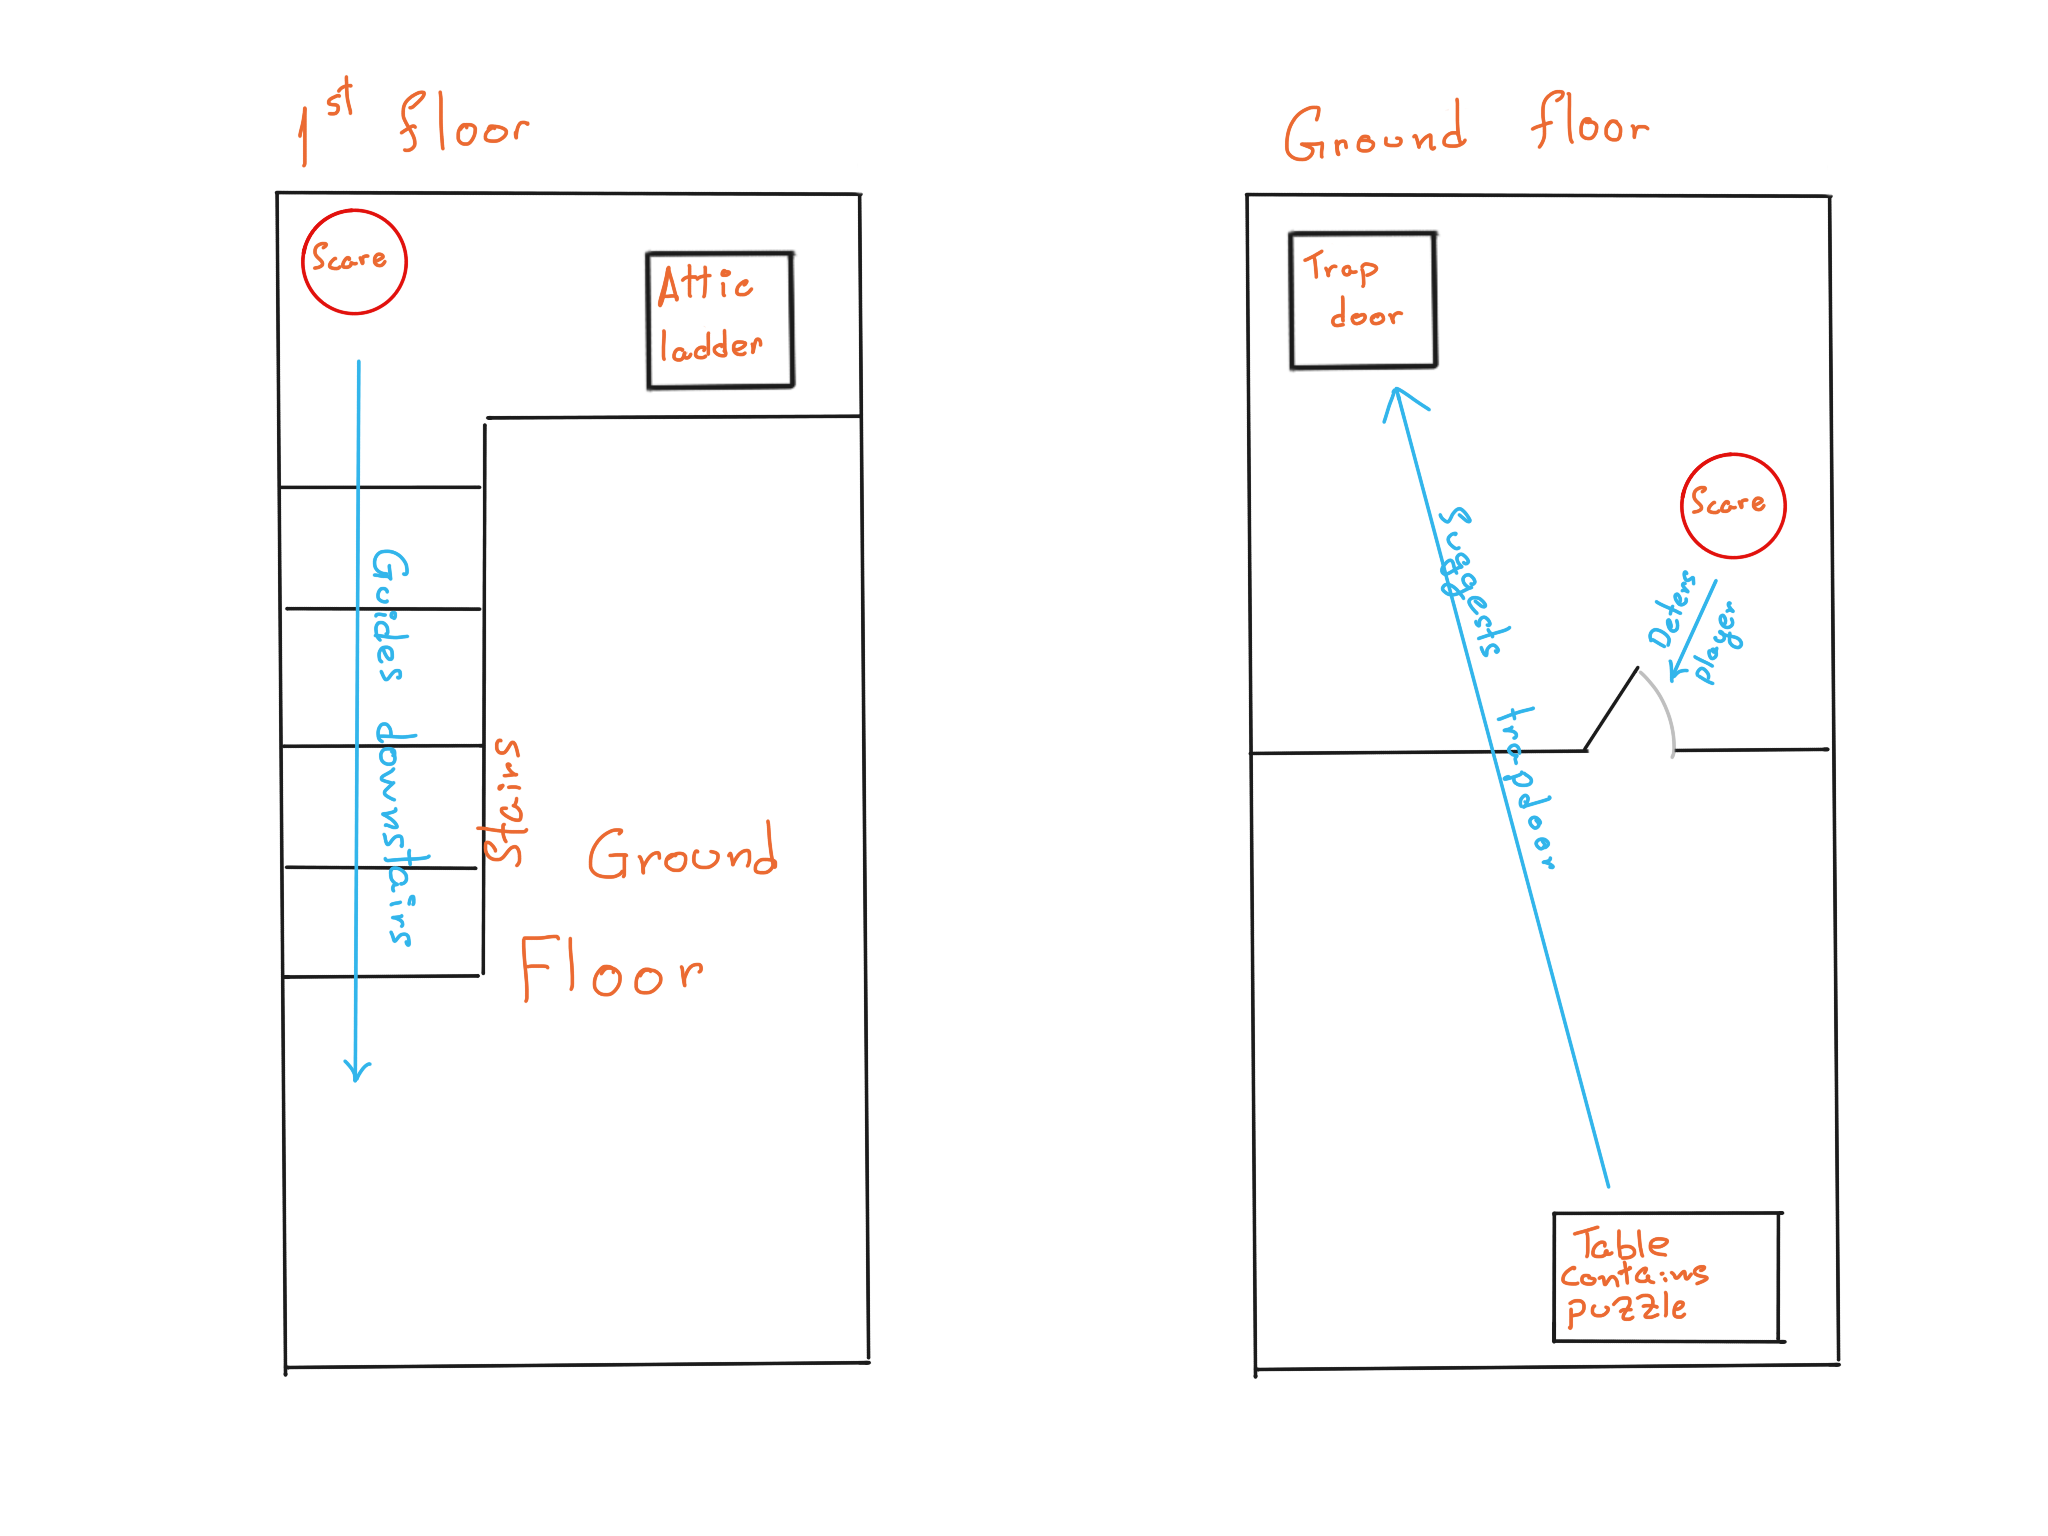 1st floor
Scare
Attic
ladder
Guides downstairs
Stairs
Ground
Floor
Ground floor
Trap
door
Scare
Deters
player
Suggests trapdoor
Table
contains
puzzle